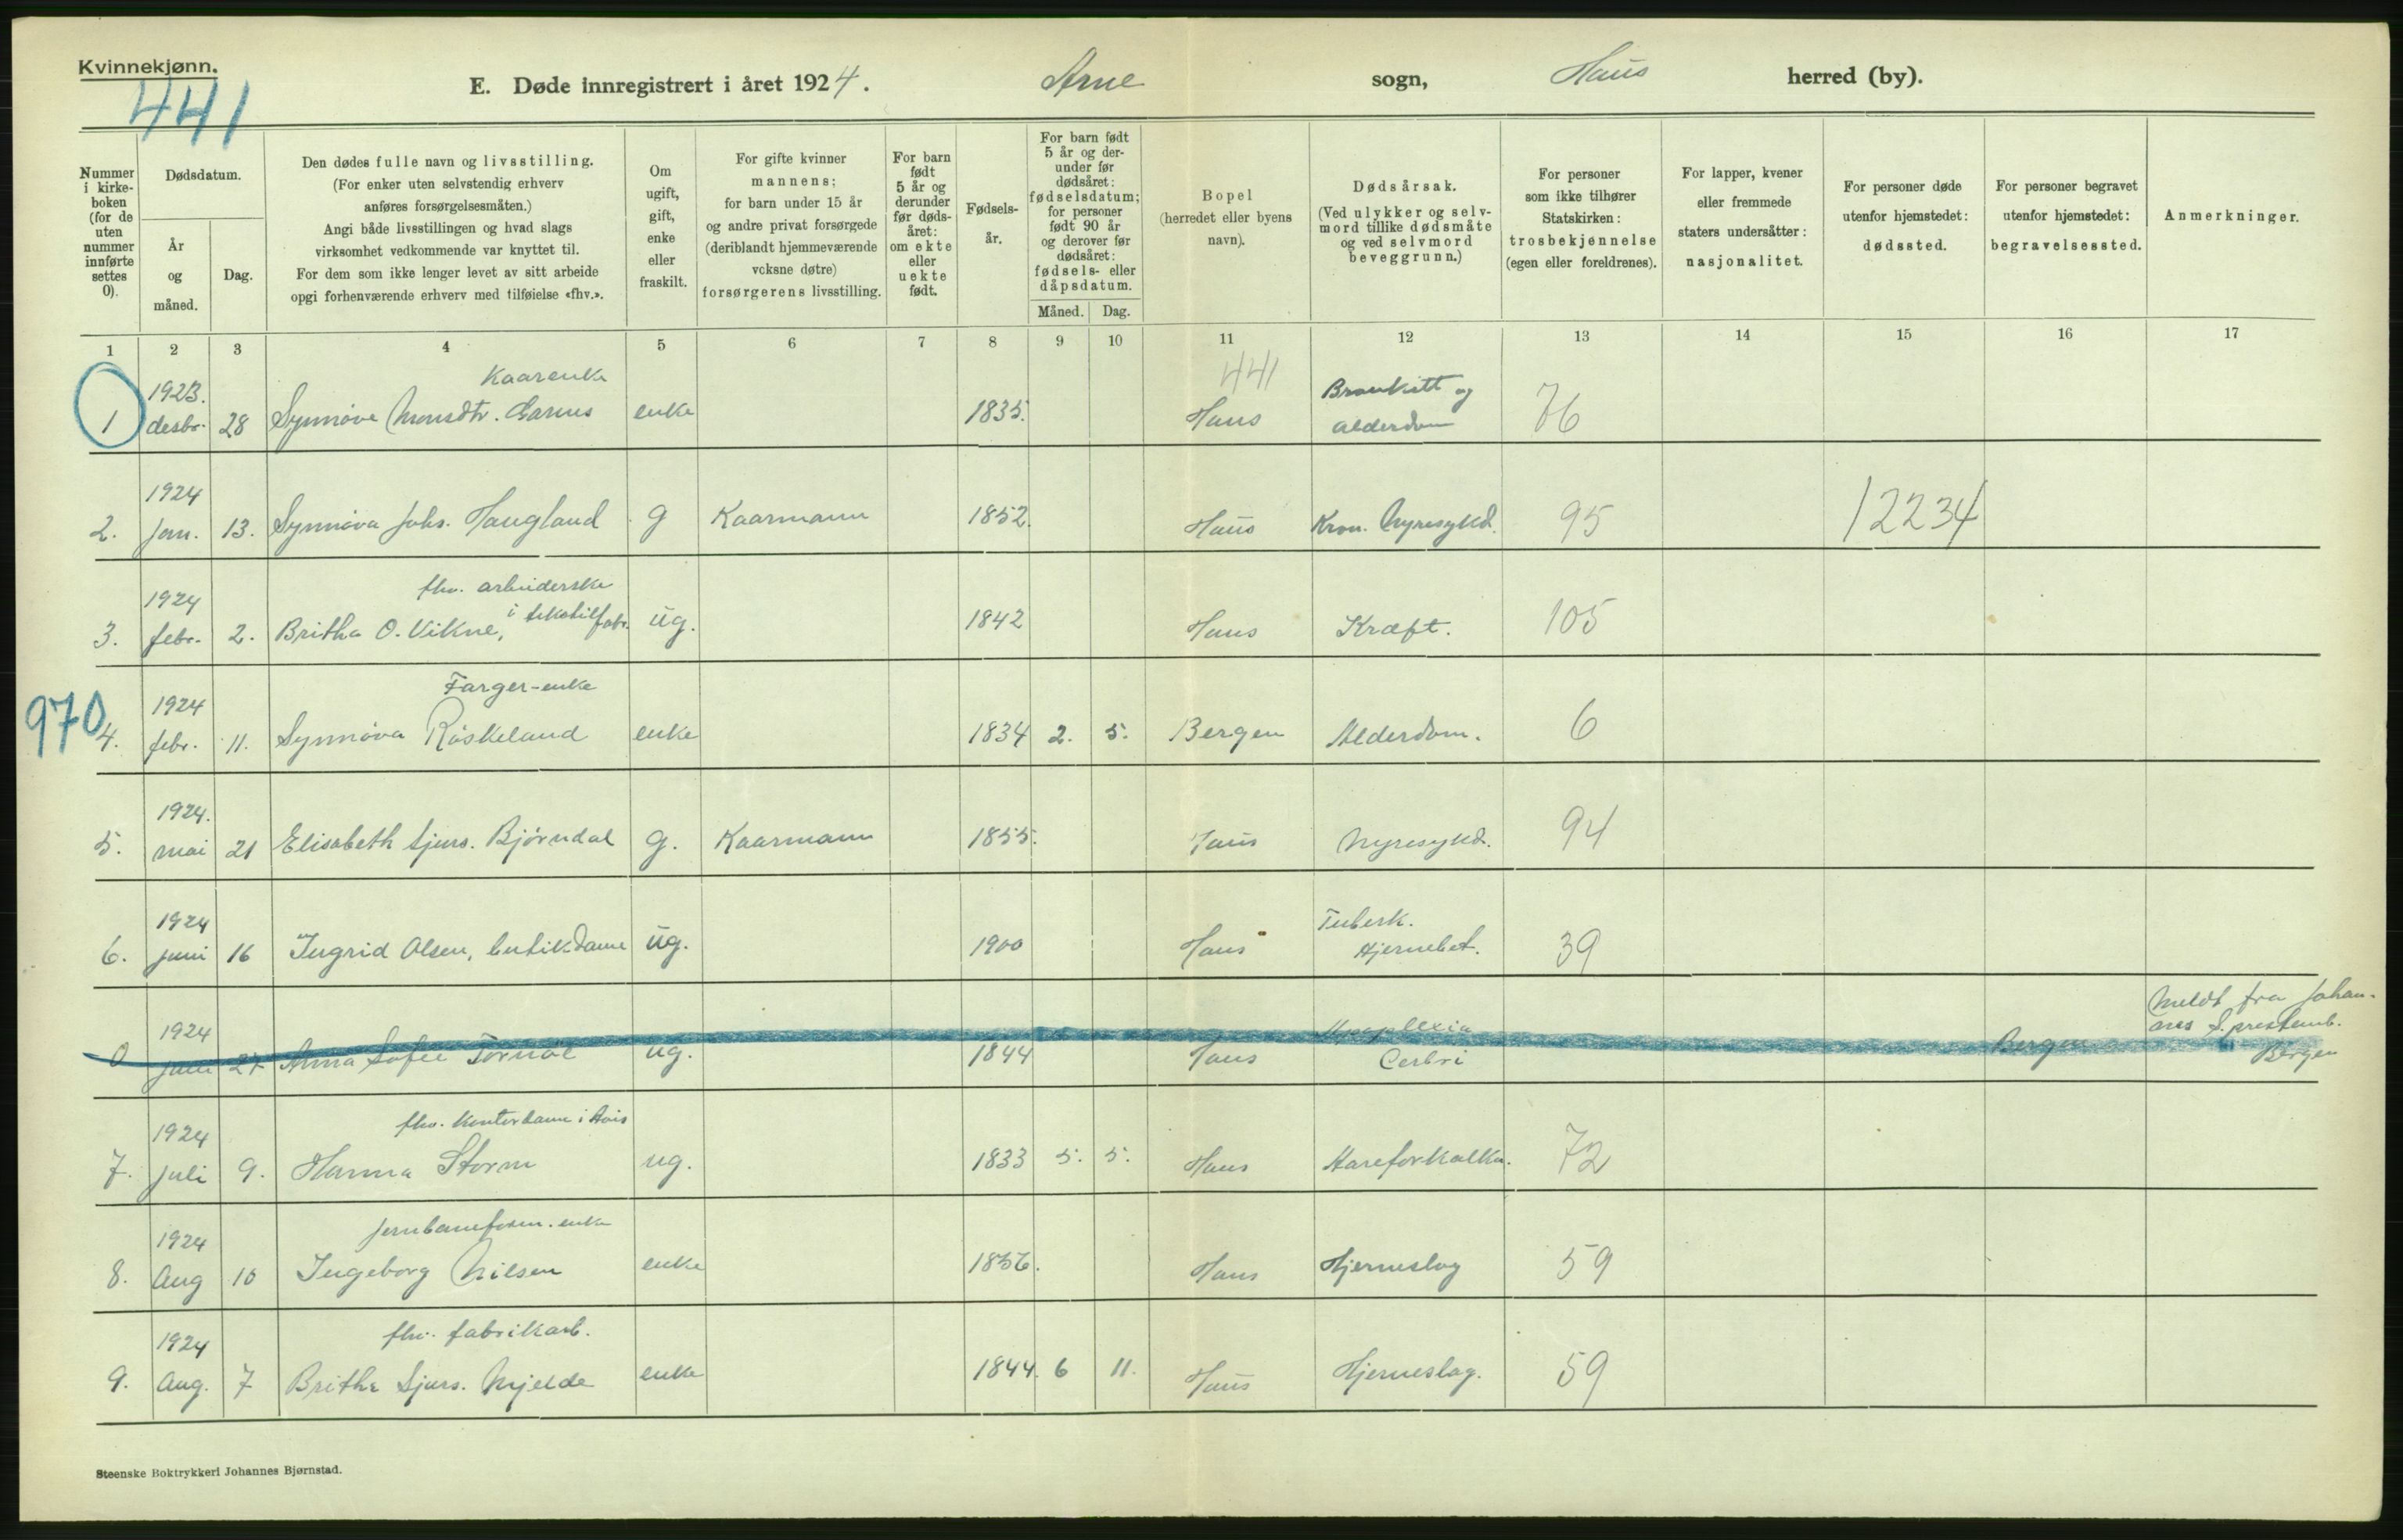 Kvinnekjønn.
441
E. Døde innregistrert i året 1924. Arne sogn, Haus herred (by).
Nummer i kirkeboken (for de uten nummer innførte settes 0).
Dødsdatum.
År og måned.
Dag.
Den dødes fulle navn og livsstilling.
(For enker uten selvstendig erhverv
anføres forsørgelsesmåten.)
Angi både livsstillingen og hvad slags
virksomhet vedkommende var knyttet til.
For dem som ikke lenger levet av sitt arbeide
opgi forhenværende erhverv med tilføielse «fhv.».
Om ugift, gift, enke eller fraskilt.
For gifte kvinner
mannens;
for barn under 15 år
og andre privat forsørgede
(deriblandt hjemmeværende
voksne døtre)
forsørgerens livsstilling.
For barn født 5 år og derunder før dødsåret: om ekte eller uekte født.
Fødselsår.
For barn født 5 år og derunder før dødsåret: fødselsdatum; for personer født 90 år og derover før dødsåret: fødsels- eller dåpsdatum.
Måned. Dag.
Bopel
(herredet eller byens
navn).
Dødsårsak.
(Ved ulykker og selvmord tillike dødsmåte og ved selvmord beveggrunn.)
For personer
som ikke tilhører
Statskirken:
trosbekjennelse
(egen eller foreldrenes).
For lapper, kvener
eller fremmede
staters undersåtter:
nasjonalitet.
For personer døde
utenfor hjemstedet:
dødssted.
For personer begravet
utenfor hjemstedet:
begravelsessted.
Anmerkninger.
1 2 3 4 5 6 7 8 9 10 11 12 13 14 15 16 17
Kaarenke 441
1 1923. desbr. 28 Synnöve Monsdtr. Garnes enke 1835. Haus Bronkitt og alderdom 76
2. 1924 Jan. 13. Synnöva Johs. Haugland g Kaarmann 1852. Haus Kron. Nyresykd. 95 12234
fhv. arbeiderske
3. 1924 febr. 2. Britha O. Vikne, i tekstilfabr. ug. 1842 Haus Kræft. 105
Farger-enke
970
4. 1924 febr. 11. Synnöva Röskeland enke 1834 2. 5. Bergen Alderdom. 6
5. 1924. mai 21 Elisabeth Sjurs. Björndal g. Kaarmann 1855. Haus Nyresykd. 94
6. 1924 juni 16 Ingrid Olsen, butikdame ug. 1900 Haus Tuberk. Hjernebet. 39
0 1924 juni 27 Anna Sofie ug. 1844 Haus Apoplexia Cerbri Bergen Meldt fra Johannes S. prestemb. Bergen
fhv. Kontordame i Avis
7. 1924 juli 9. Hanna Storm ug. 1833 5. 5. Haus Aareforkalkn. 72
Jernbaneform. enke
8. 1924 Aug 10 Ingeborg Nilsen enke 1856. Haus Hjerneslag 59
fhv. fabrikarb.
9. 1924 Aug. 7 Britha Sjurs. Mjelde enke 1844. 6 11. Haus Hjerneslag. 59
Steenske Boktrykkeri Johannes Bjørnstad.